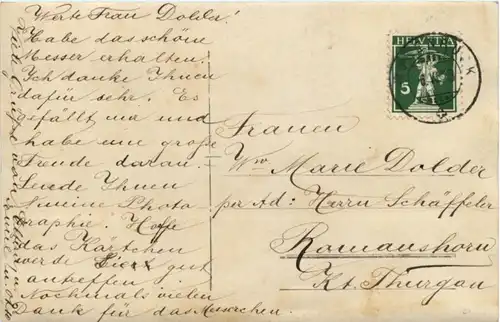 Werte Frau Dolder!
Habe das schöne
Messer erhalten.
Ich danke Ihnen
dafür sehr. Es
gefällt mir und
habe eine große
Freude daran.
Sende Ihnen
Meine Photo
graphie. Hoffe
das Kärtchen
werde Sie gut
antreffen
Nochmals vielen
Dank für das Messerchen.
HELVETIA
5
Frauen
Wwe Marie Dolder
per Ad: Herrn Schäffeler
Romanshorn
Kt. Thurgau